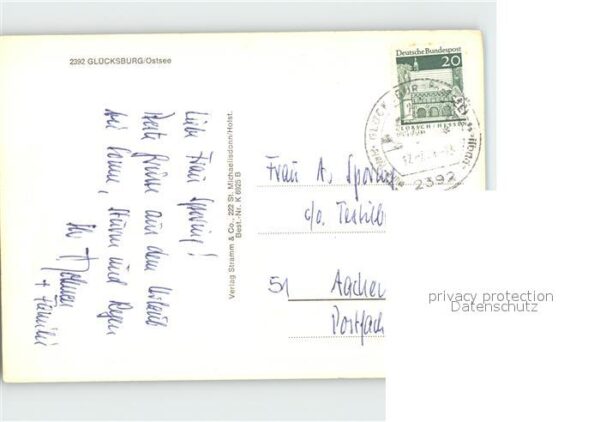 2392 GLÜCKSBURG/Ostsee
Liebe Frau Sporing!
Beste Grüße aus dem Urlaub
mit Sonne, Sturm und Regen
Ihr
+ Familie
Verlag Stramm & Co., 222 St. Michaelisdonn/Holst.
Best.-Nr. K 6925 B
Deutsche Bundespost
20
LORSCH/HESSEN
2392
Frau A. Sporing
c/o. Textil
51 Aachen
Postfach
privacy protection
Datenschutz